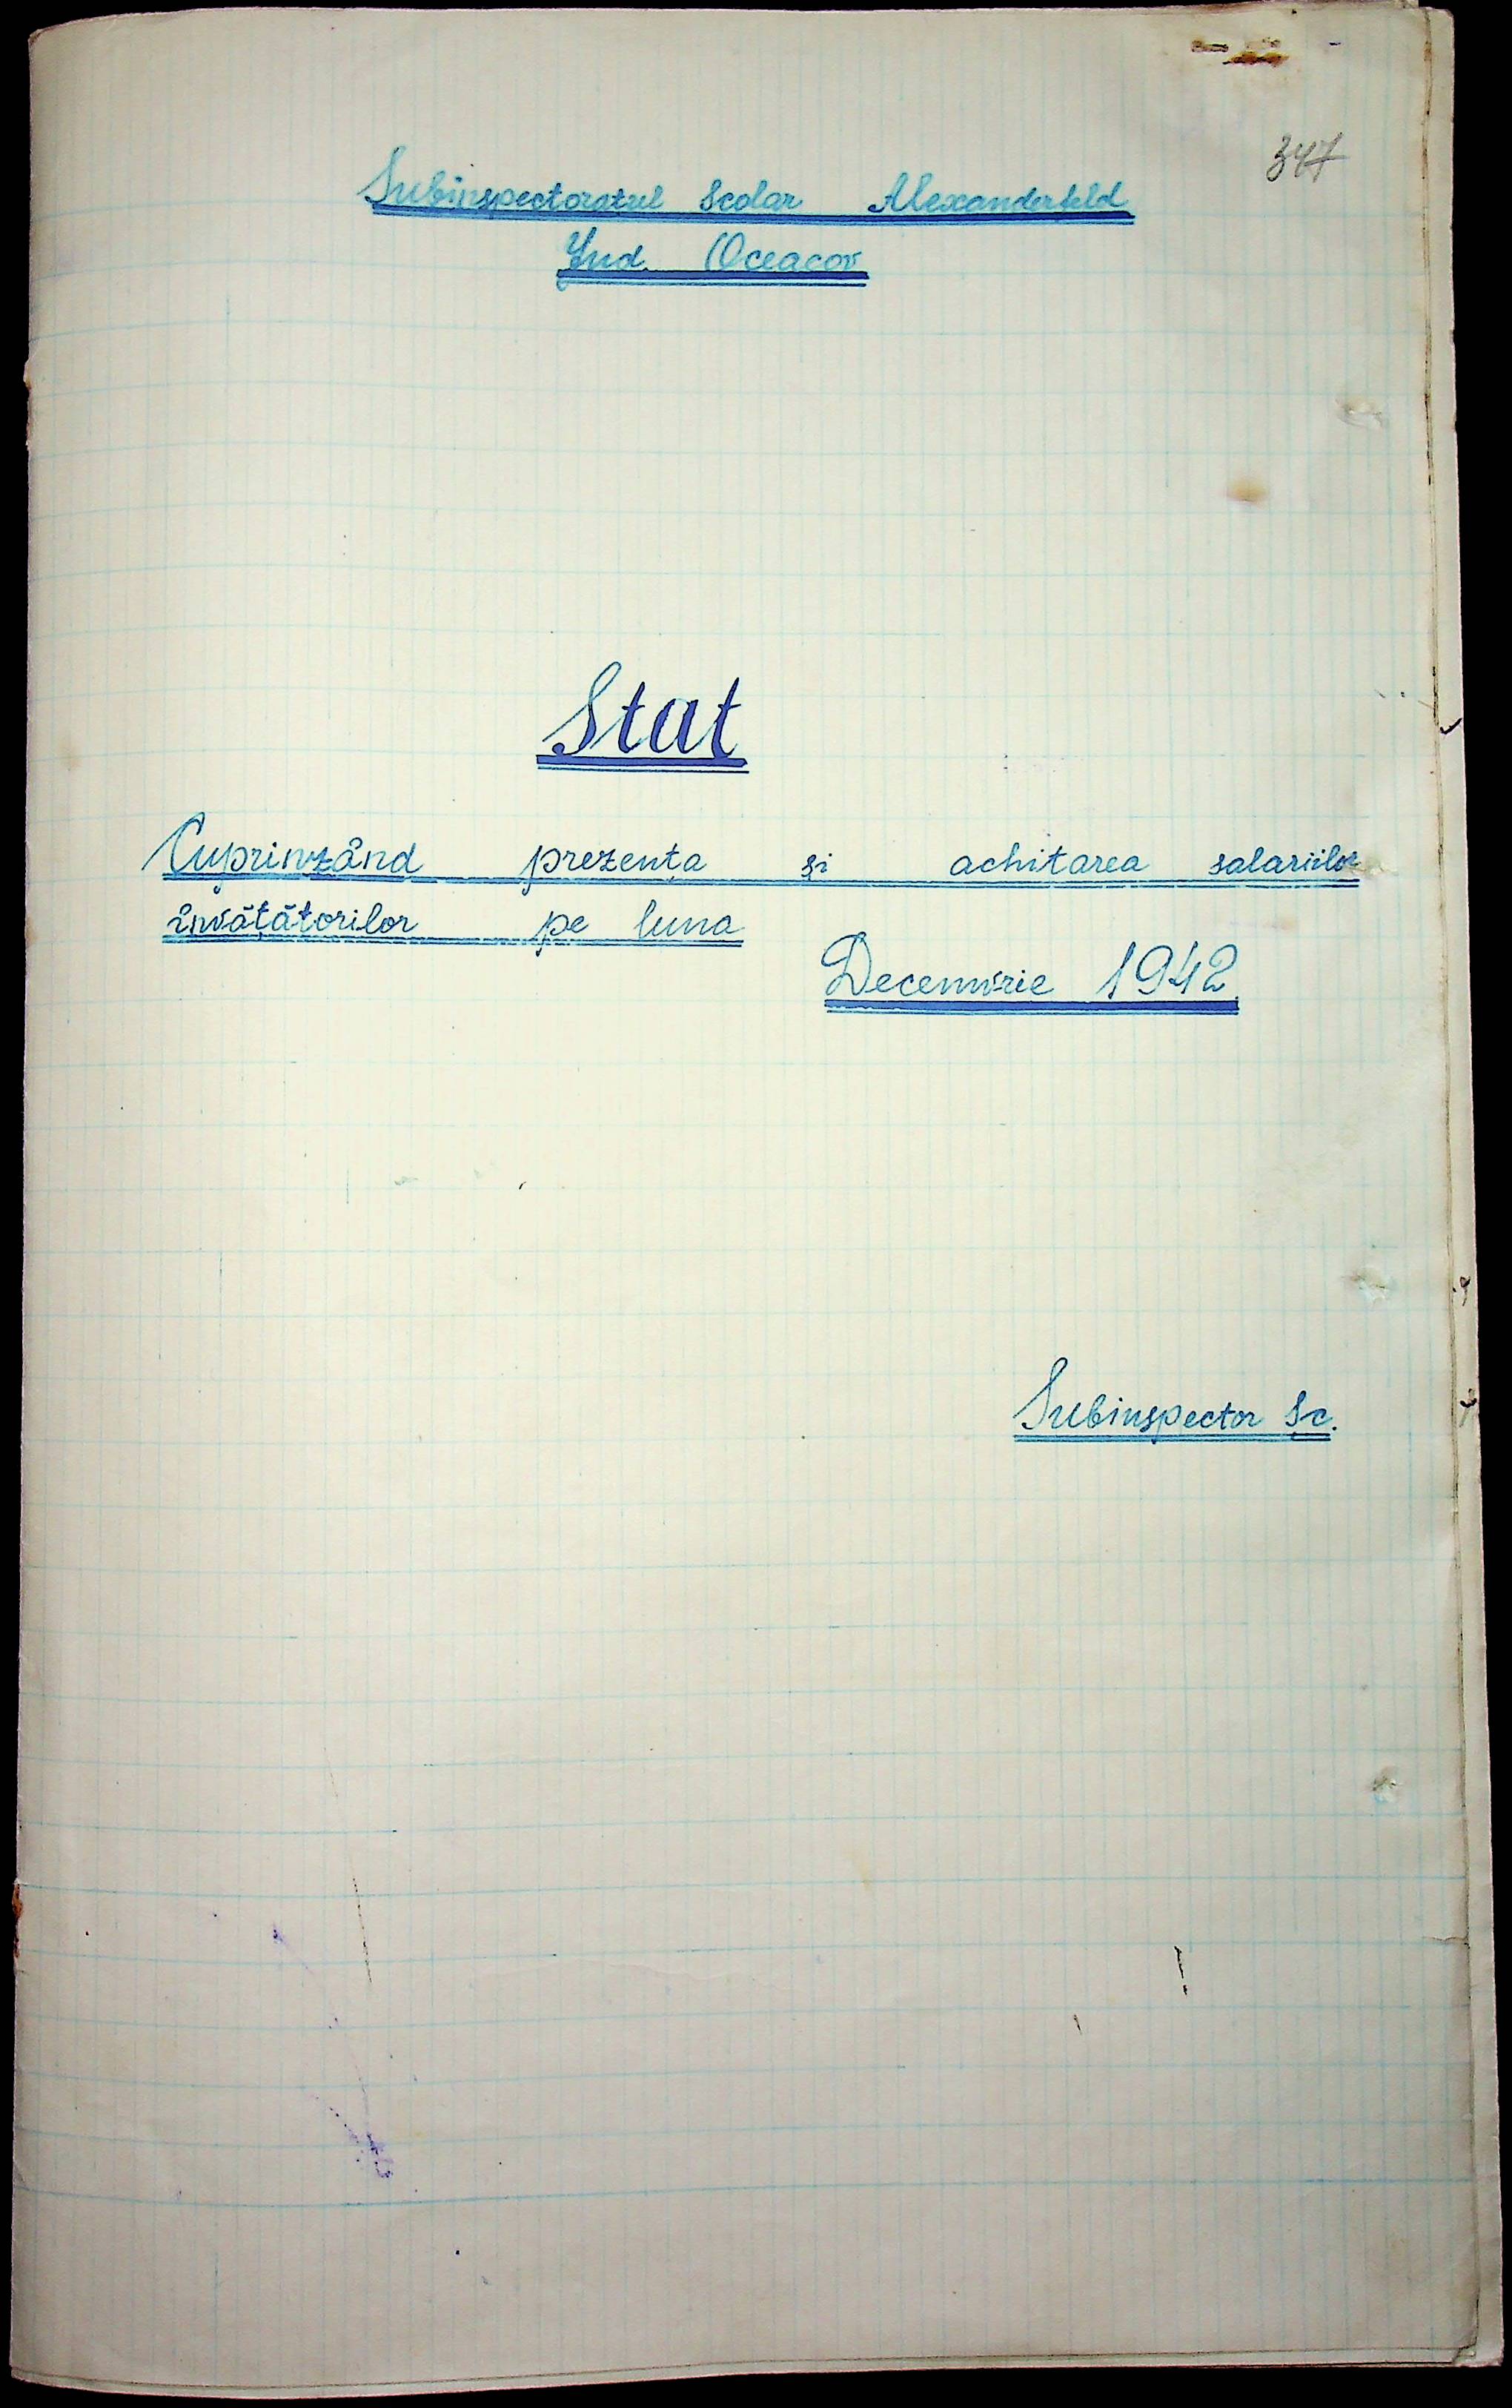 347
Subinspectoratul Scolar Alexanderfeld
Jud. Oceacov
Stat
Cuprinzând prezența și achitarea salariilor
învățătorilor pe luna
Decemvrie 1942
Subinspector Șc.